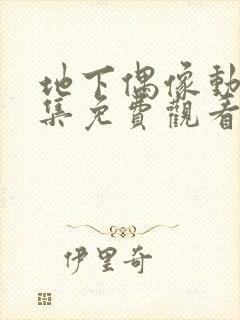 地下偶像動
集免費觀看
伊里奇